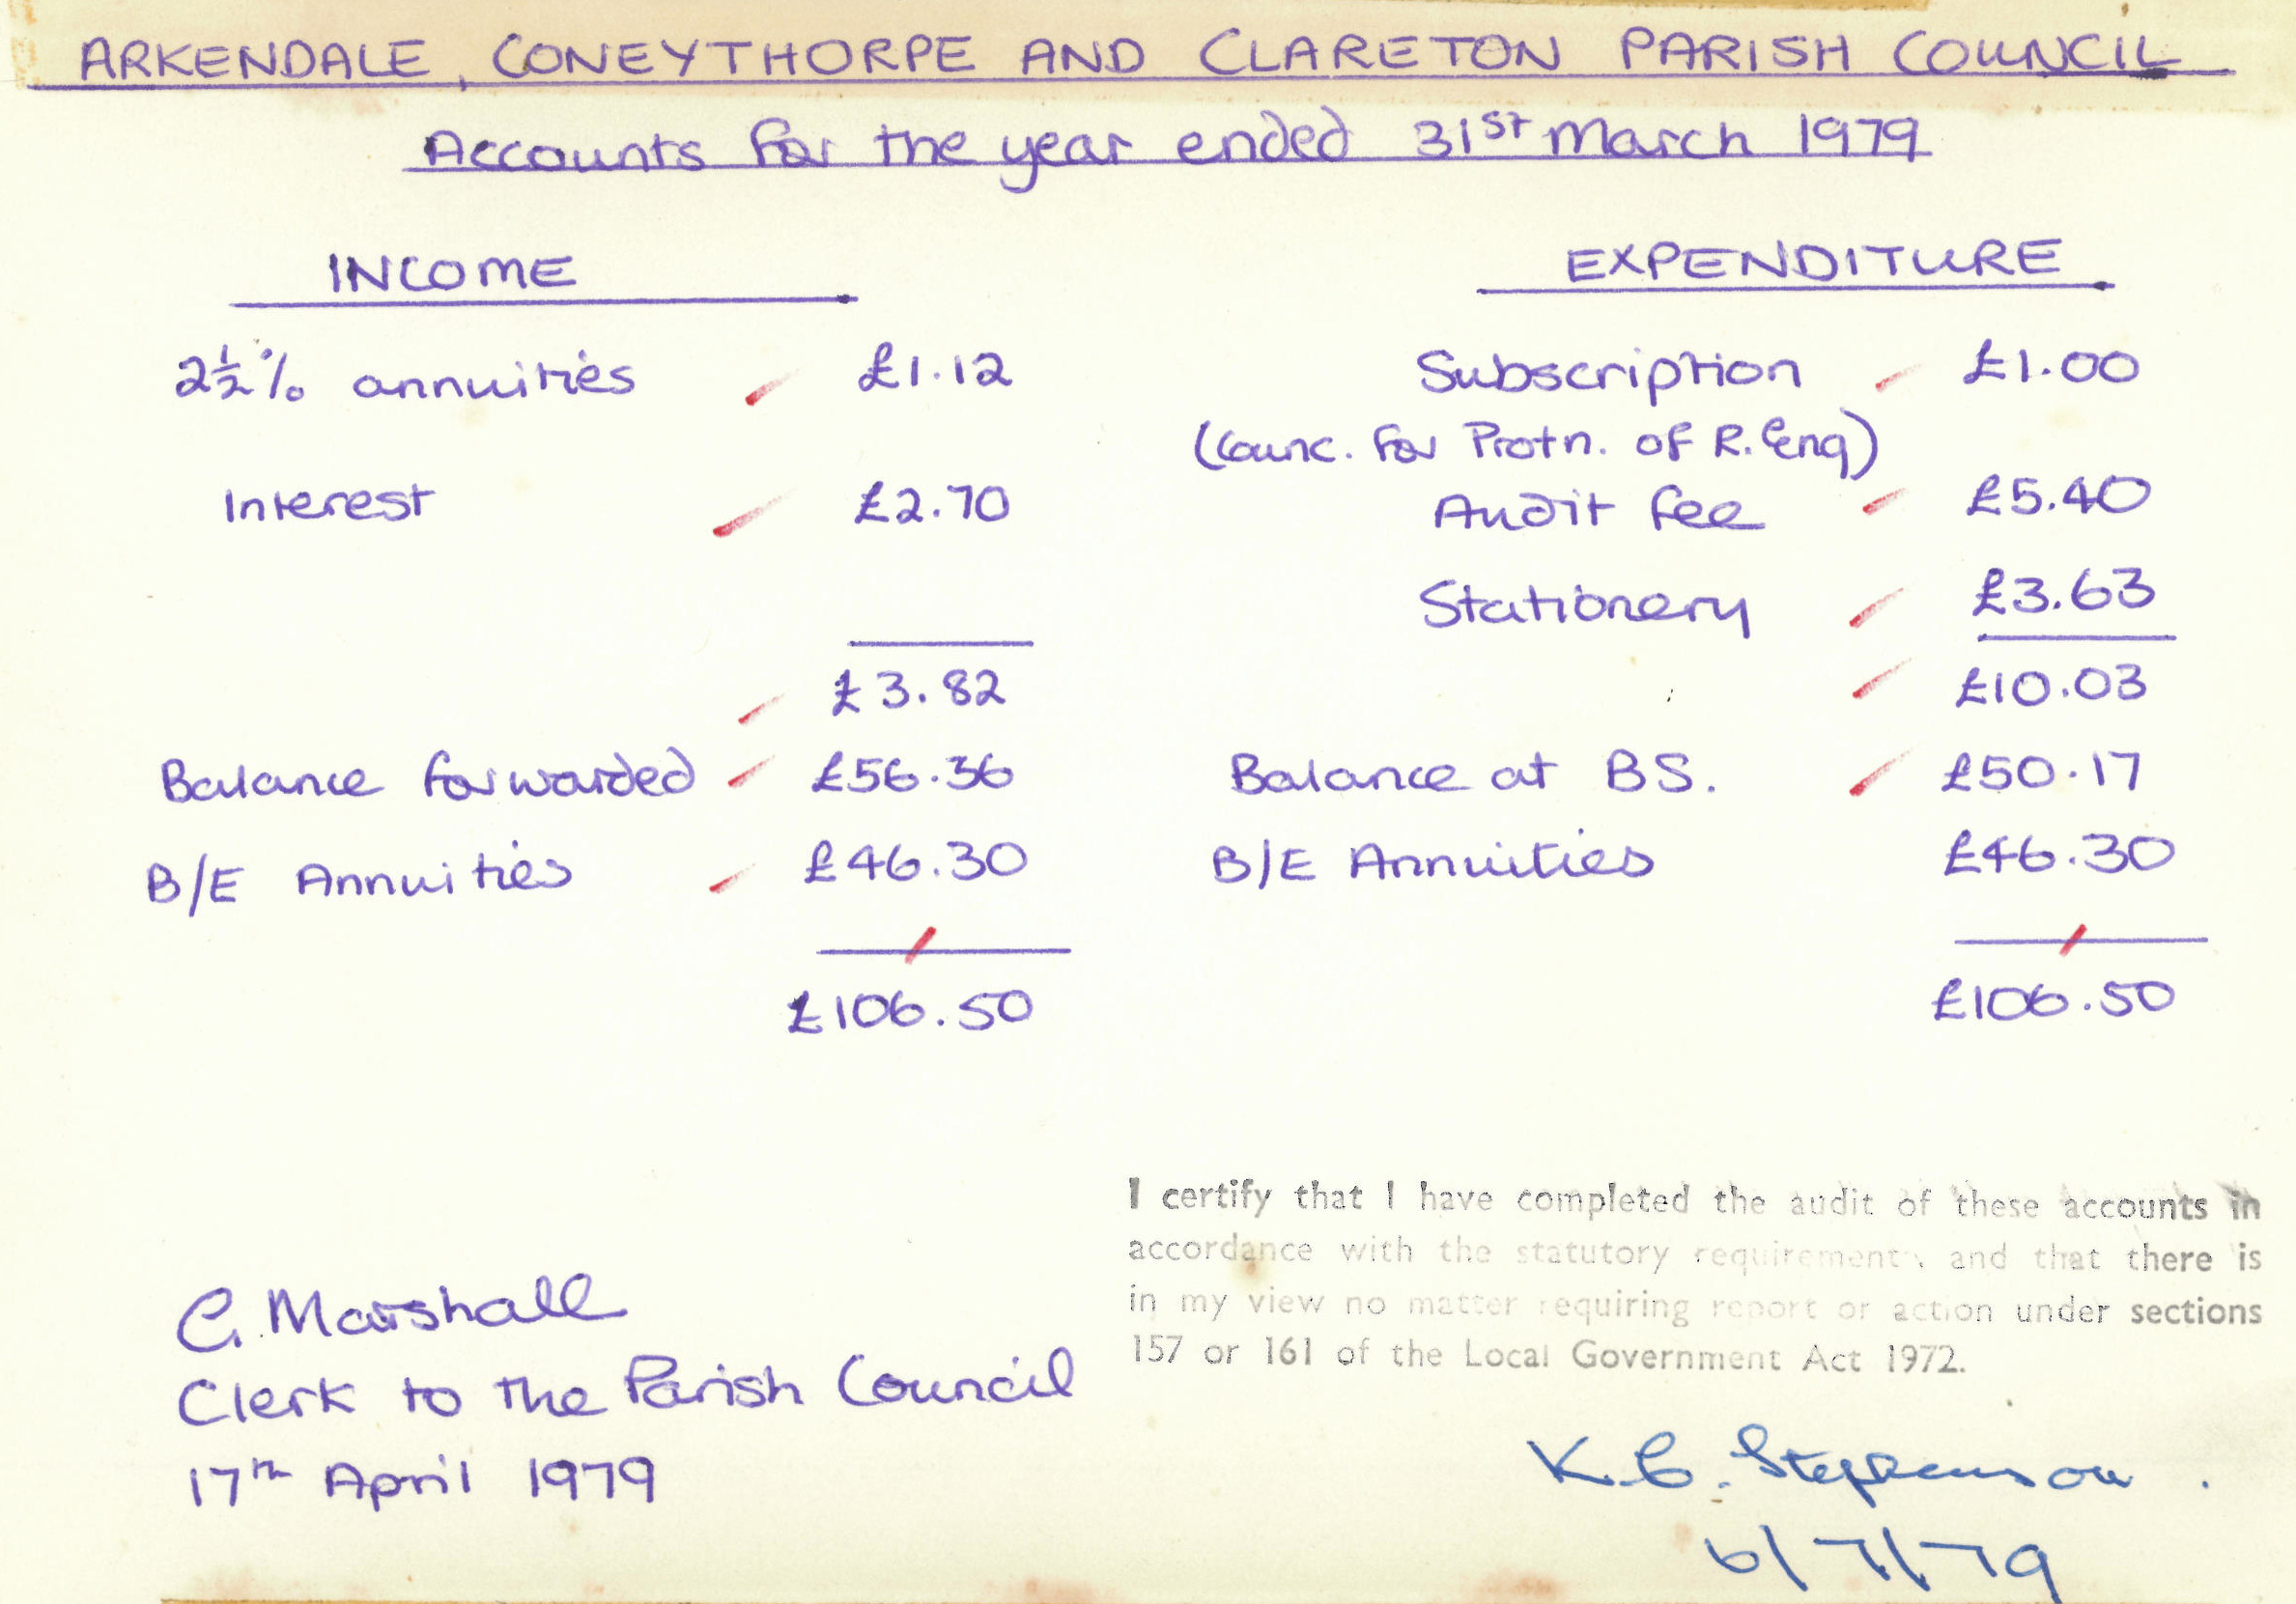 ARKENDALE, CONEYTHORPE AND CLARETON PARISH COUNCIL
Accounts for the year ended 31st March 1979
INCOME
2½% annuities £1.12
Interest £2.70
£3.82
Balance forwarded £56.36
B/E Annuities £46.30
£106.50
EXPENDITURE
Subscription £1.00
(Counc. for Protn. of R. Eng)
Audit fee £5.40
Stationery £3.63
£10.03
Balance at BS. £50.17
B/E Annuities £46.30
£106.50
C. Marshall
Clerk to the Parish Council
17th April 1979
I certify that I have completed the audit of these accounts in
accordance with the statutory requirements and that there is
in my view no matter requiring report or action under sections
157 or 161 of the Local Government Act 1972.
K. G. Stephenson.
6/7/79